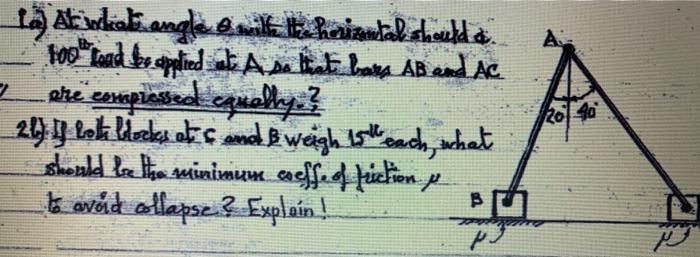 1a) At what angle θ with the horizontal should a
100 lb load be applied at A so that bars AB and AC
are compressed equally.?
2b) If both blocks at C and B weigh 15 lb each, what
should be the minimum coeff. of friction μ
to avoid collapse? Explain!
A
20 40
B
μ μ